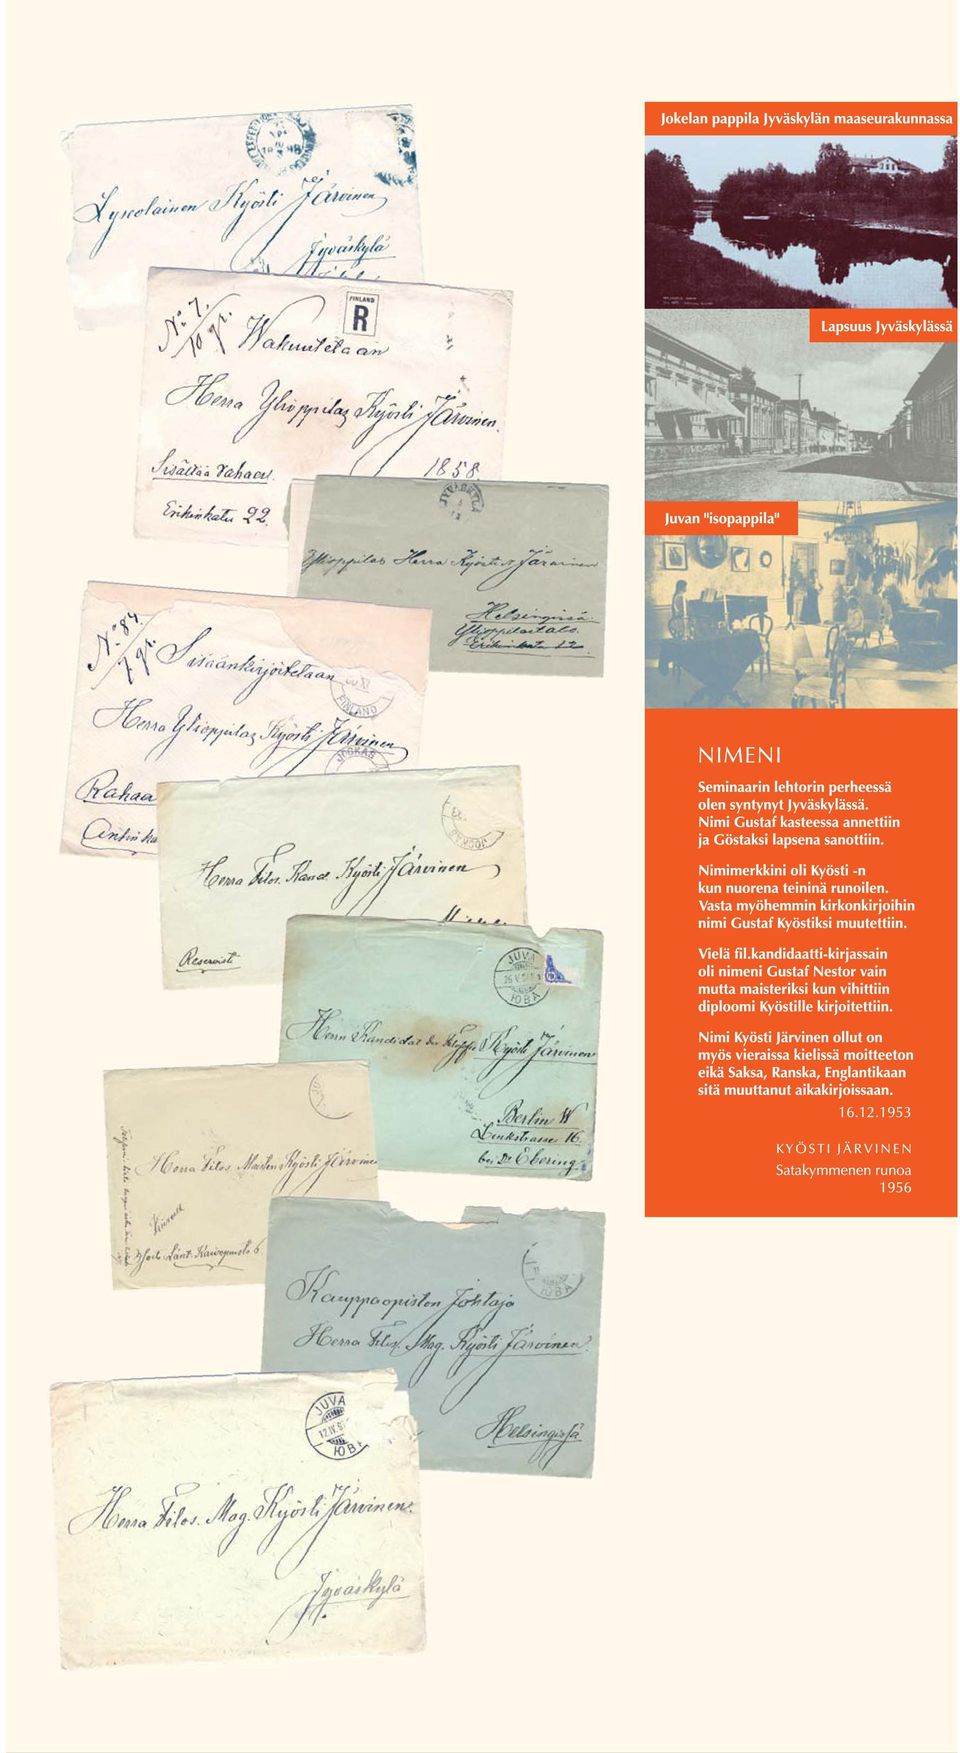 Jokelan pappila Jyväskylän maaseurakunnassa
Lapsuus Jyväskylässä
Juvan "isopappila"
NIMENI
Seminaarin lehtorin perheessä
olen syntynyt Jyväskylässä.
Nimi Gustaf kasteessa annettiin
ja Göstaksi lapsena sanottiin.
Nimimerkkini oli Kyösti -n
kun nuorena teininä runoilen.
Vasta myöhemmin kirkonkirjoihin
nimi Gustaf Kyöstiksi muutettiin.
Vielä fil.kandidaatti-kirjassain
oli nimeni Gustaf Nestor vain
mutta maisteriksi kun vihittiin
diploomi Kyöstille kirjoitettiin.
Nimi Kyösti Järvinen ollut on
myös vieraissa kielissä moitteeton
eikä Saksa, Ranska, Englantikaan
sitä muuttanut aikakirjoissaan.
16.12.1953
KYÖSTI JÄRVINEN
Satakymmenen runoa
1956
Lyseolainen Kyösti Järvinen
Jyväskylä
No. 7.
10 gr.
FINLAND
R
Wakuutetaan
Herra Ylioppilas Kyösti Järvinen.
Sisältää rahaa.
1858.
Erikinkatu 22.
JYVÄSKYLÄ
Ylioppilas Herra Kyösti Järvinen
Helsingissä.
Ylioppilastalo.
Erikinkatu 22
No 84.
7 gr.
Sisäänkirjoitetaan
FINLAND
Herra Ylioppilas Kyösti Järvinen
JOCKAS
Rahaa
JOCKAS
Herra Filos. Kand. Kyösti Järvinen
Reservisti
JUVA
ЮВА
Herrn Kandidat der Kyösti Järvinen
Berlin W
Linkstrasse 16.
bei Dr Ebering
Herra Filos. Maisteri Kyösti Järvinen
ЮВА
Kauppaopiston Johtaja
Herra Filos. Mag. Kyösti Järvinen.
Helsingissä
JUVA
12.IV.
ЮВА
Herra Filos. Mag. Kyösti Järvinen.
Jyväskylä